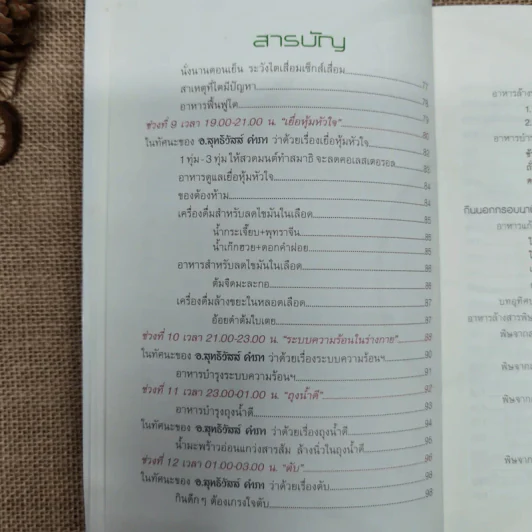 สารบัญ
นั่งนานตอนเย็น ระวังไตเสื่อมเซ็กส์เสื่อม 77
สาเหตุที่ไตมีปัญหา 78
อาหารฟื้นฟูไต 79
ช่วงที่ 9 เวลา 19.00-21.00 น. "เยื่อหุ้มหัวใจ" 80
ในทัศนะของ อ.สุทธิวัสส์ คำภา ว่าด้วยเรื่องเยื่อหุ้มหัวใจ 82
1 ทุ่ม - 3 ทุ่ม ให้สวดมนต์ทำสมาธิ จะลดคอเลสเตอรอล 83
อาหารดูแลเยื่อหุ้มหัวใจ 84
ของต้องห้าม 84
เครื่องดื่มสำหรับลดไขมันในเลือด 85
น้ำกระเจี๊ยบ+พุทราจีน 85
น้ำเก๊กฮวย+ดอกคำฝอย 86
อาหารสำหรับลดไขมันในเลือด 86
ต้มจืดมะละกอ 86
เครื่องดื่มล้างขยะในหลอดเลือด 87
อ้อยดำต้มใบเตย 87
ช่วงที่ 10 เวลา 21.00-23.00 น. "ระบบความร้อนในร่างกาย" 88
ในทัศนะของ อ.สุทธิวัสส์ คำภา ว่าด้วยเรื่องระบบความร้อนฯ 90
อาหารบำรุงระบบความร้อนฯ 91
ช่วงที่ 11 เวลา 23.00-01.00 น. "ถุงน้ำดี" 92
อาหารบำรุงถุงน้ำดี 93
ในทัศนะของ อ.สุทธิวัสส์ คำภา ว่าด้วยเรื่องถุงน้ำดี 94
น้ำมะพร้าวอ่อนแกว่งสารส้ม ล้างนิ่วในถุงน้ำดี 95
ช่วงที่ 12 เวลา 01.00-03.00 น. "ตับ" 96
ในทัศนะของ อ.สุทธิวัสส์ คำภา ว่าด้วยเรื่องตับ 98
กินดึกๆ ต้องเกรงใจตับ 98
อาหารล้าง
1.
2.
อาหารบำรุ
กินนอกกรอบนา
อาหารแก้
บทอุทิศ
อาหารล้างสารพิษ
พิษจากส
พิษจาก
พิษจาก
พิษจาก